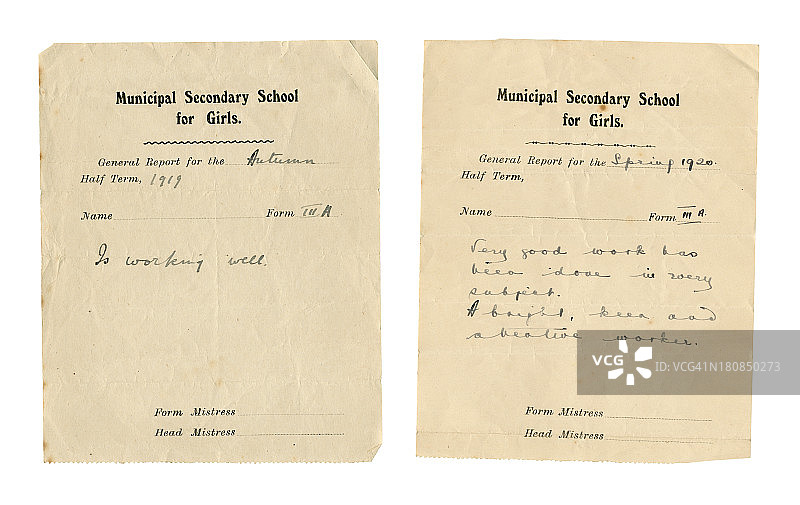 Municipal Secondary School
for Girls.
General Report for the Autumn
Half Term, 1919
Name Form III A
Is working well.
Form Mistress
Head Mistress
Municipal Secondary School
for Girls.
General Report for the Spring 1920.
Half Term,
Name Form III A.
Very good work has
been done in every
subject.
A bright, keen and
worker.
Form Mistress
Head Mistress
VCG
vcg.com
ID: VCG41N180850273